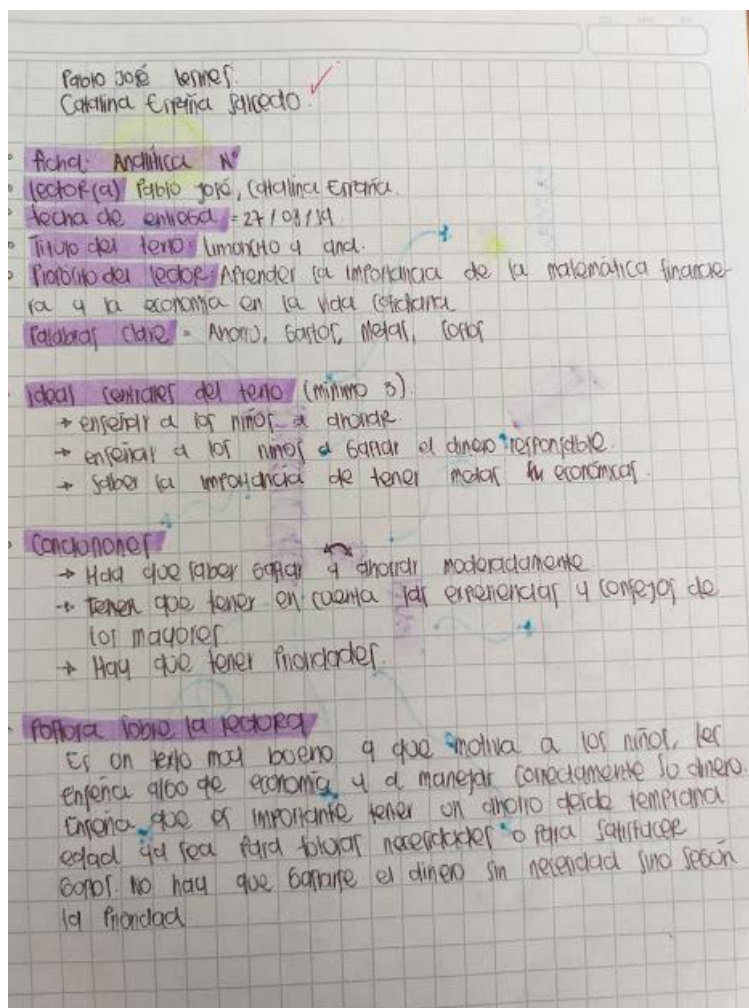 Pablo José
Catalina España Salcedo.
ficha: Analítica N°
lector(a) Pablo José, Catalina España.
fecha de entrega = 27/08/19
Titulo del texto: limoncito y ana.
Proposito del lector: Aprender la importancia de la matematica financie-
ra y la economía en la vida cotidiana
Palabras clave = Ahorro, Gastos, Metas,
Ideas centrales del texto (minimo 3)
→ enseñar a los niños a ahorrar
→ enseñar a los niños a ganar el dinero responsible.
→ Saber la importancia de tener metas economicas.
Conclusiones
→ que saber gastar y ahorrar moderadamente
→ Tener que tener en cuenta las experiencias y consejos de
los mayores
→ Hay que tener Prioridades.
sobre la lectora
Es un texto muy bueno y que motiva a los niños, les
enseña algo de economía y a manejar correctamente su dinero.
Enseña que es importante tener un ahorro desde temprana
edad ya sea para necesidades o para satisfacer
No hay que el dinero sin necesidad sino según
la Prioridad